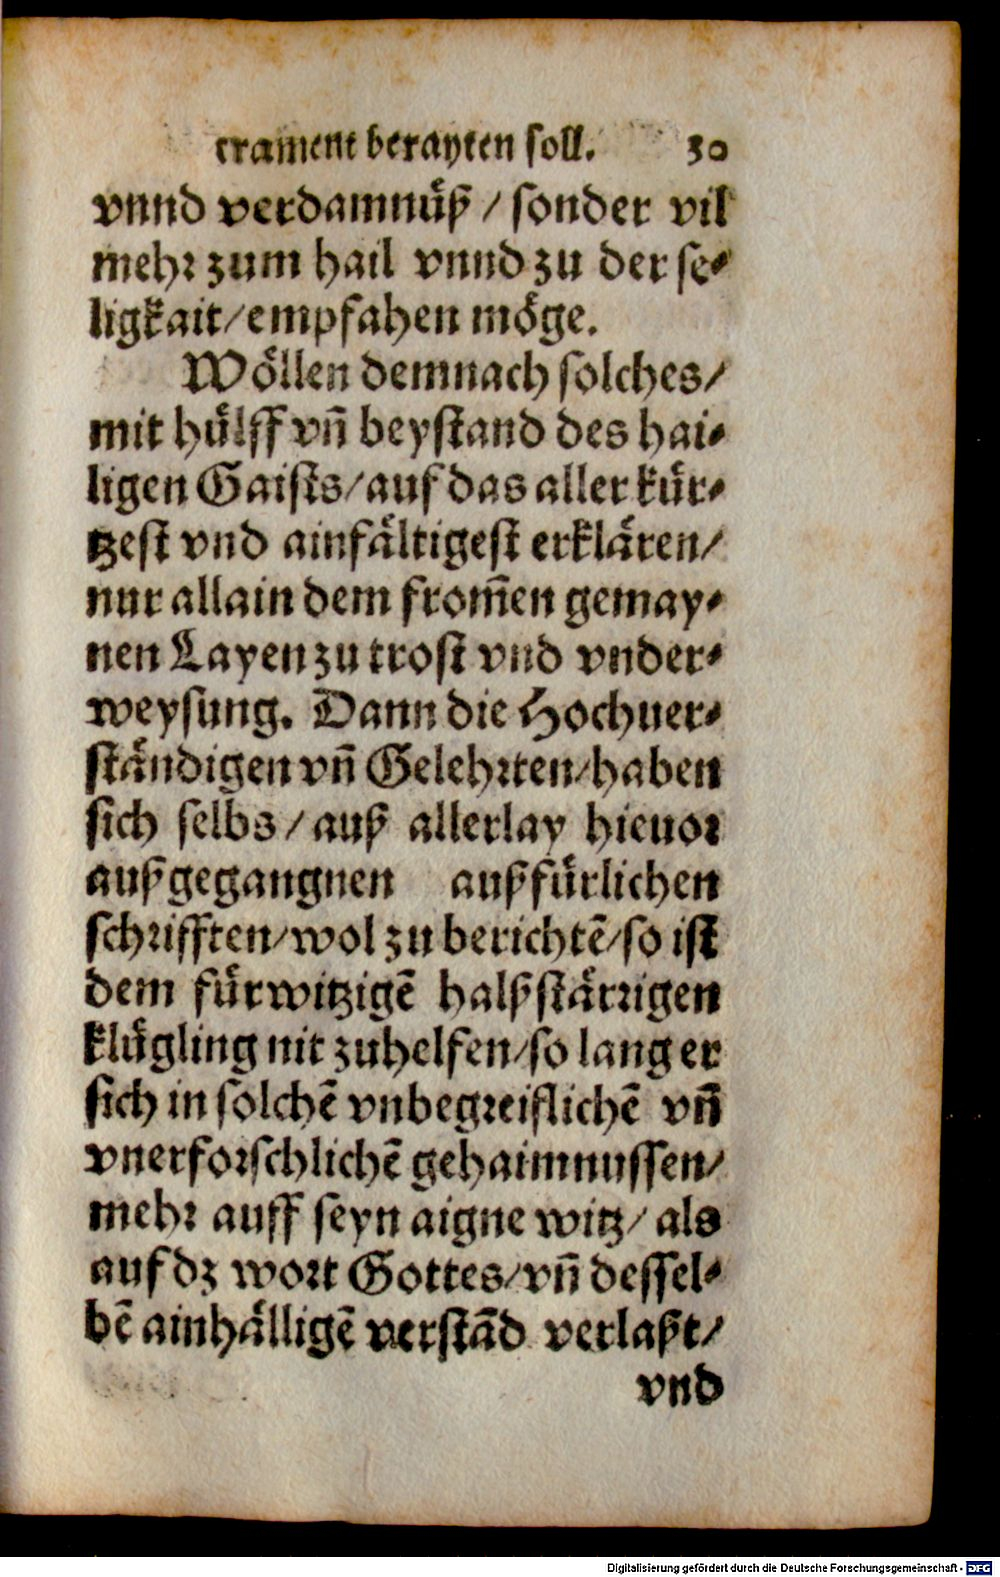 crament berayten soll. 30
vnnd verdamnuͤß / sonder vil
mehr zum hail vnnd zu der se-
ligkait / empfahen moͤge.
Woͤllen demnach solches /
mit huͤlff vñ beystand des hai-
ligen Gaists / auf das aller kuͤr-
tzest vnd ainfaͤltigest erklaͤren /
nur allain dem from̃en gemay-
nen Layen zu trost vnd vnder-
weysung. Dann die Hochuer-
staͤndigen vñ Gelehrten / haben
sich selbs / auß allerlay hieuor
außgegangnen außfuͤrlichen
schrifften / wol zu berichtẽ / so ist
dem fuͤrwitzigẽ halßstaͤrrigen
kluͤgling nit zuhelfen / so lang er
sich in solchẽ vnbegreiflichẽ vñ
vnerforschlichẽ gehaimnussen /
mehr auff seyn aigne witz / als
auf dz wort Gottes / vñ dessel-
bẽ ainhaͤlligẽ verstãd verlaßt /
vnd
Digitalisierung gefördert durch die Deutsche Forschungsgemeinschaft - DFG